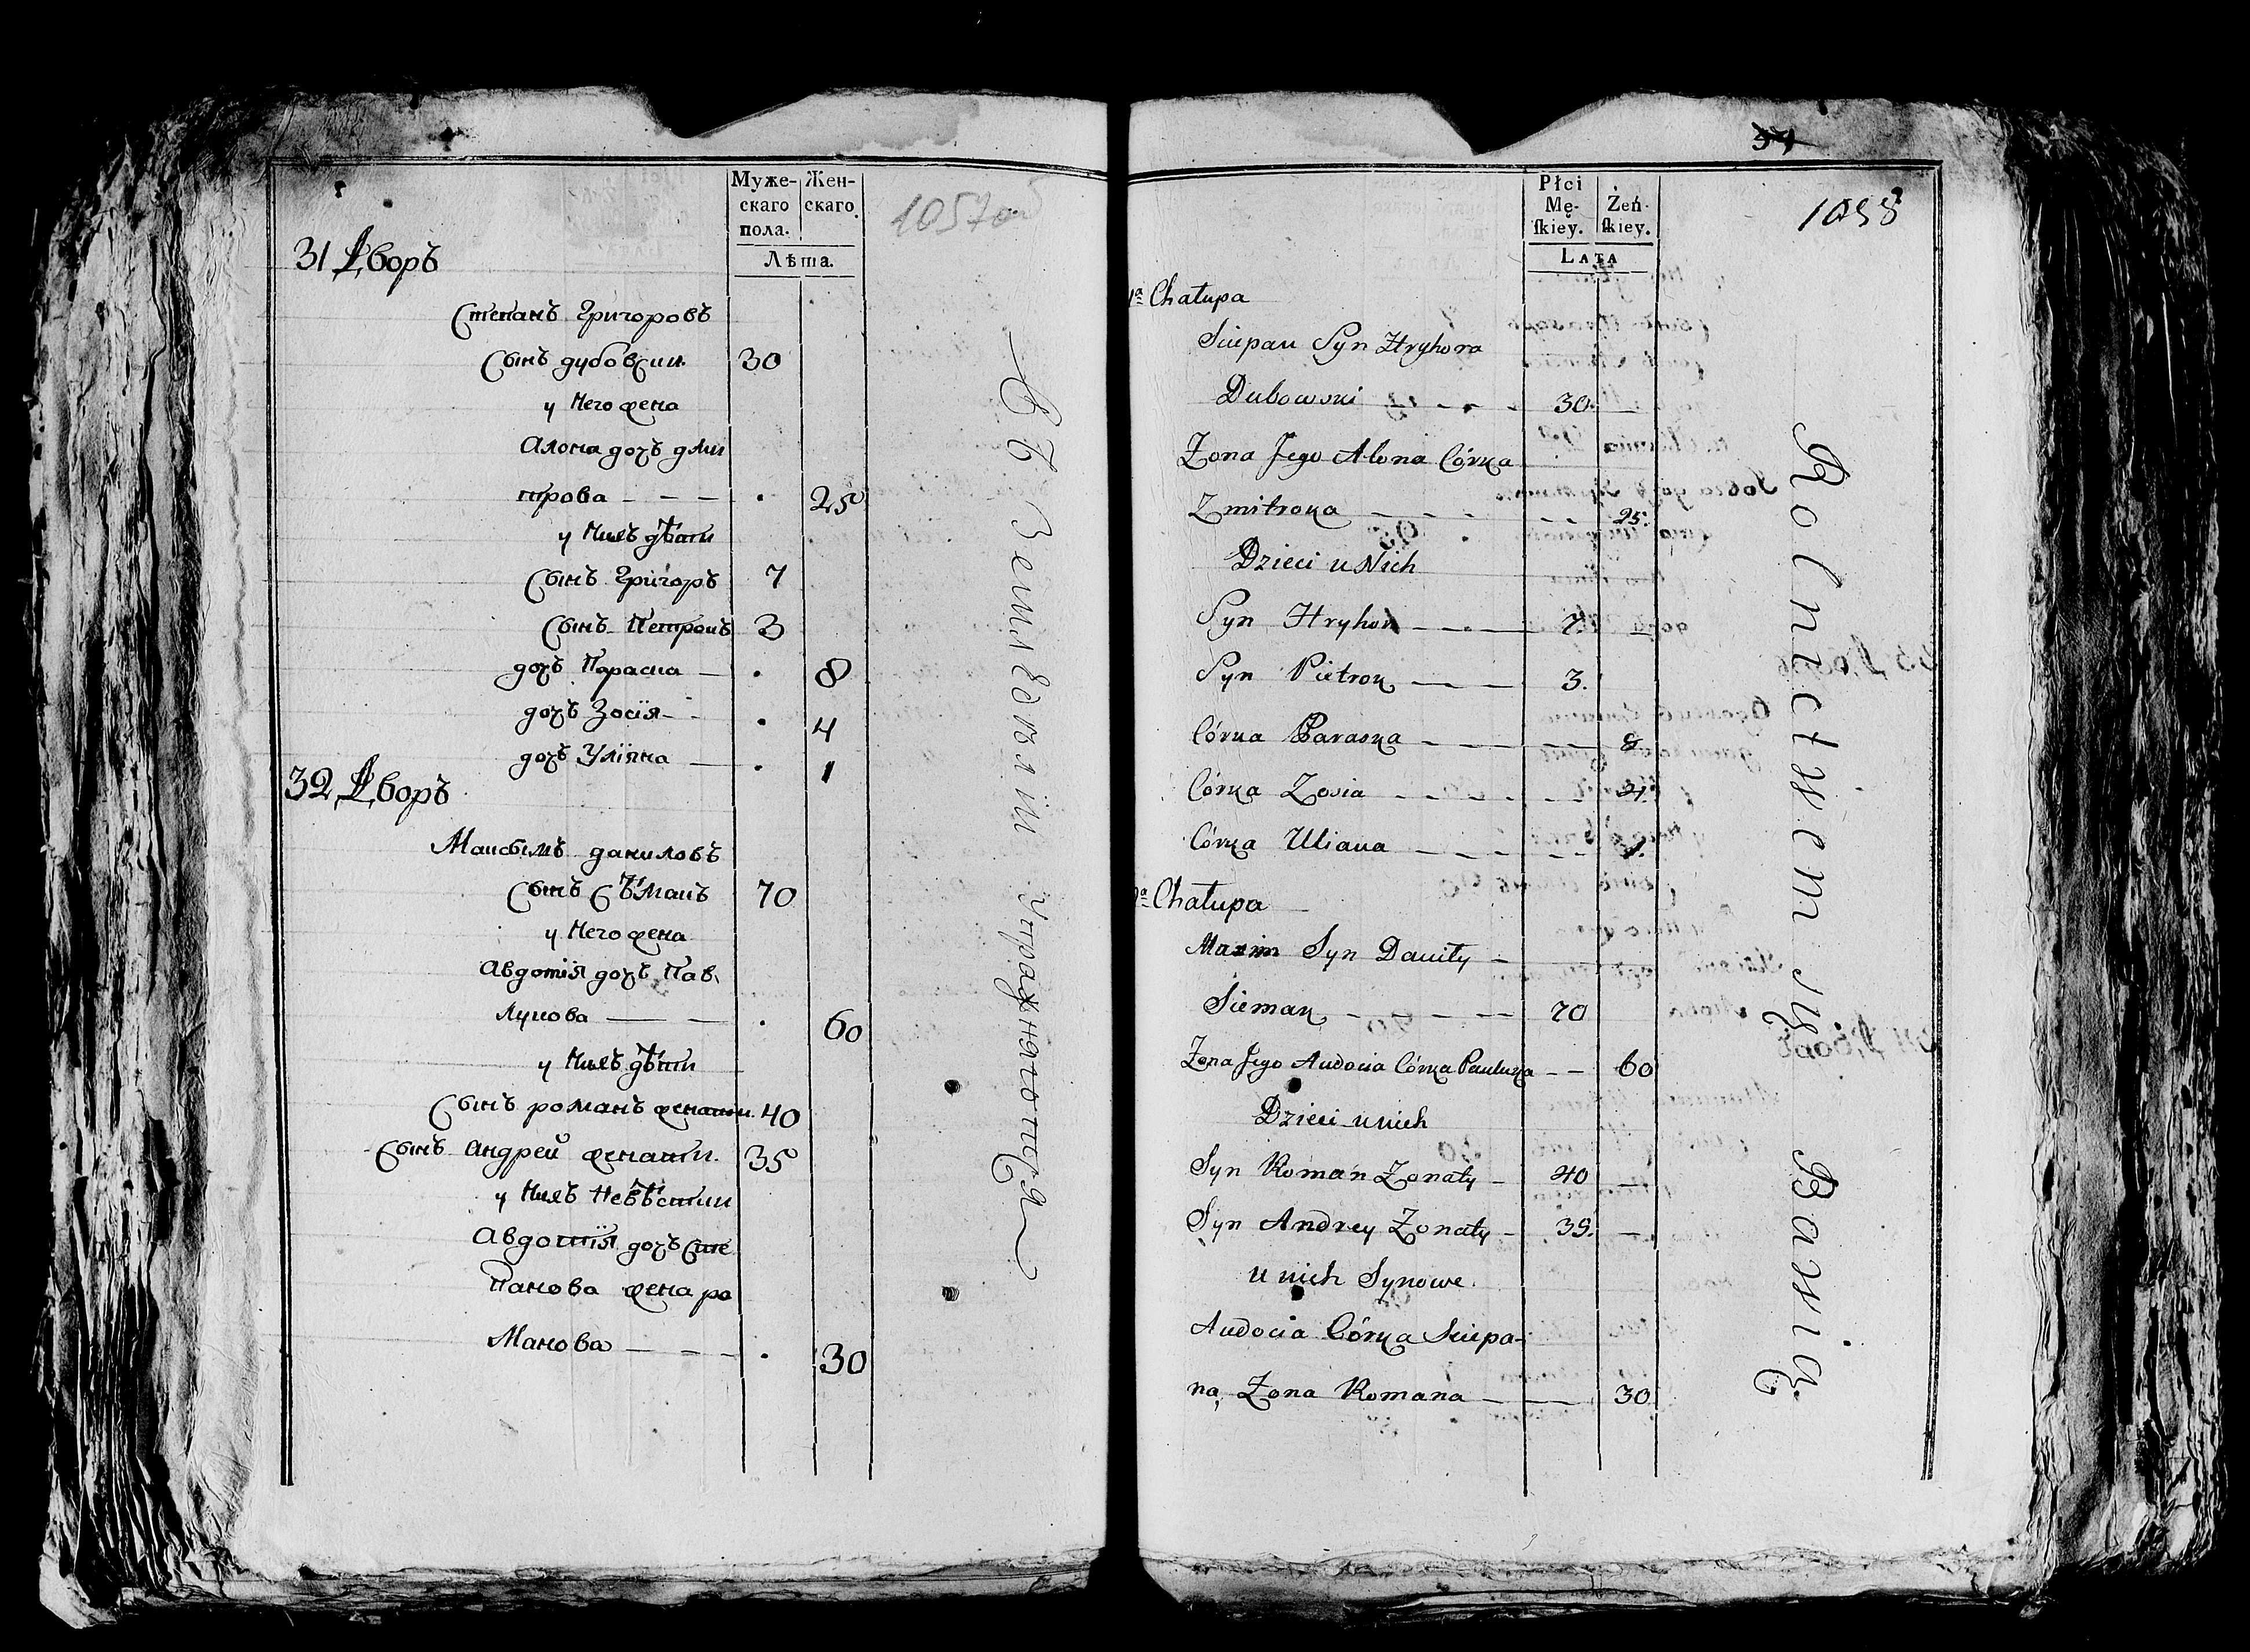 Муже-
скаго
пола.
Жен-
скаго
Лѣта.
1057об
31 Дворъ
Степанъ Григоровъ
Сынъ дубовски 30
у Него жена
Алона дочь дми
трова — — — . 25
у Нихъ дѣти
Сынъ Григоръ 7
Сынъ Петрокъ 3
дочь Параска — . 8
дочь Зосія - - . 4
дочь Уліяна — . 1
32 Дворъ
Максымъ даниловъ
Сынъ Сѣмакъ 70
у Него жена
Авдотія дочь Пав,
лукова — — . 60
у Нихъ дѣти
Сынъ романъ женати. 40
Сынъ андрей женати. 35
у Нихъ Невѣстки
Авдотія дочь Сте
панова жена ро
Манова — — — . 30
Въ Земледѣліи Упражняютця
57
Płci
Mę-
ſkiey.
Żeń-
ſkiey.
LATA
1058
1ª Chałupa
Sciepan Syn Hryhora
Dubowski - - - 30. —
Zona Jego Alona Córka
Zmitroka - - - - - - 25.
Dzieci u Nich
Syn Hryhor — — — 7. —
Syn Pietrok — — — 3.
Córka Paraska — — — 8
Córka Zosia - - - - - - 4.
Córka Uliana - - - - - - 1.
2ª Chałupa
Maxim Syn Daniły —
Siemak - - - - — 70
Zona Jego Audocia Córka Pauluka — — 60
Dzieci u nich
Syn Roman Zonaty — 40 —
Syn Andrey Zonaty — 35. —
u nich Synowe.
Audocia Córka Sciepa-
na, Zona Romana — — 30
Rolnictwem się Bawią